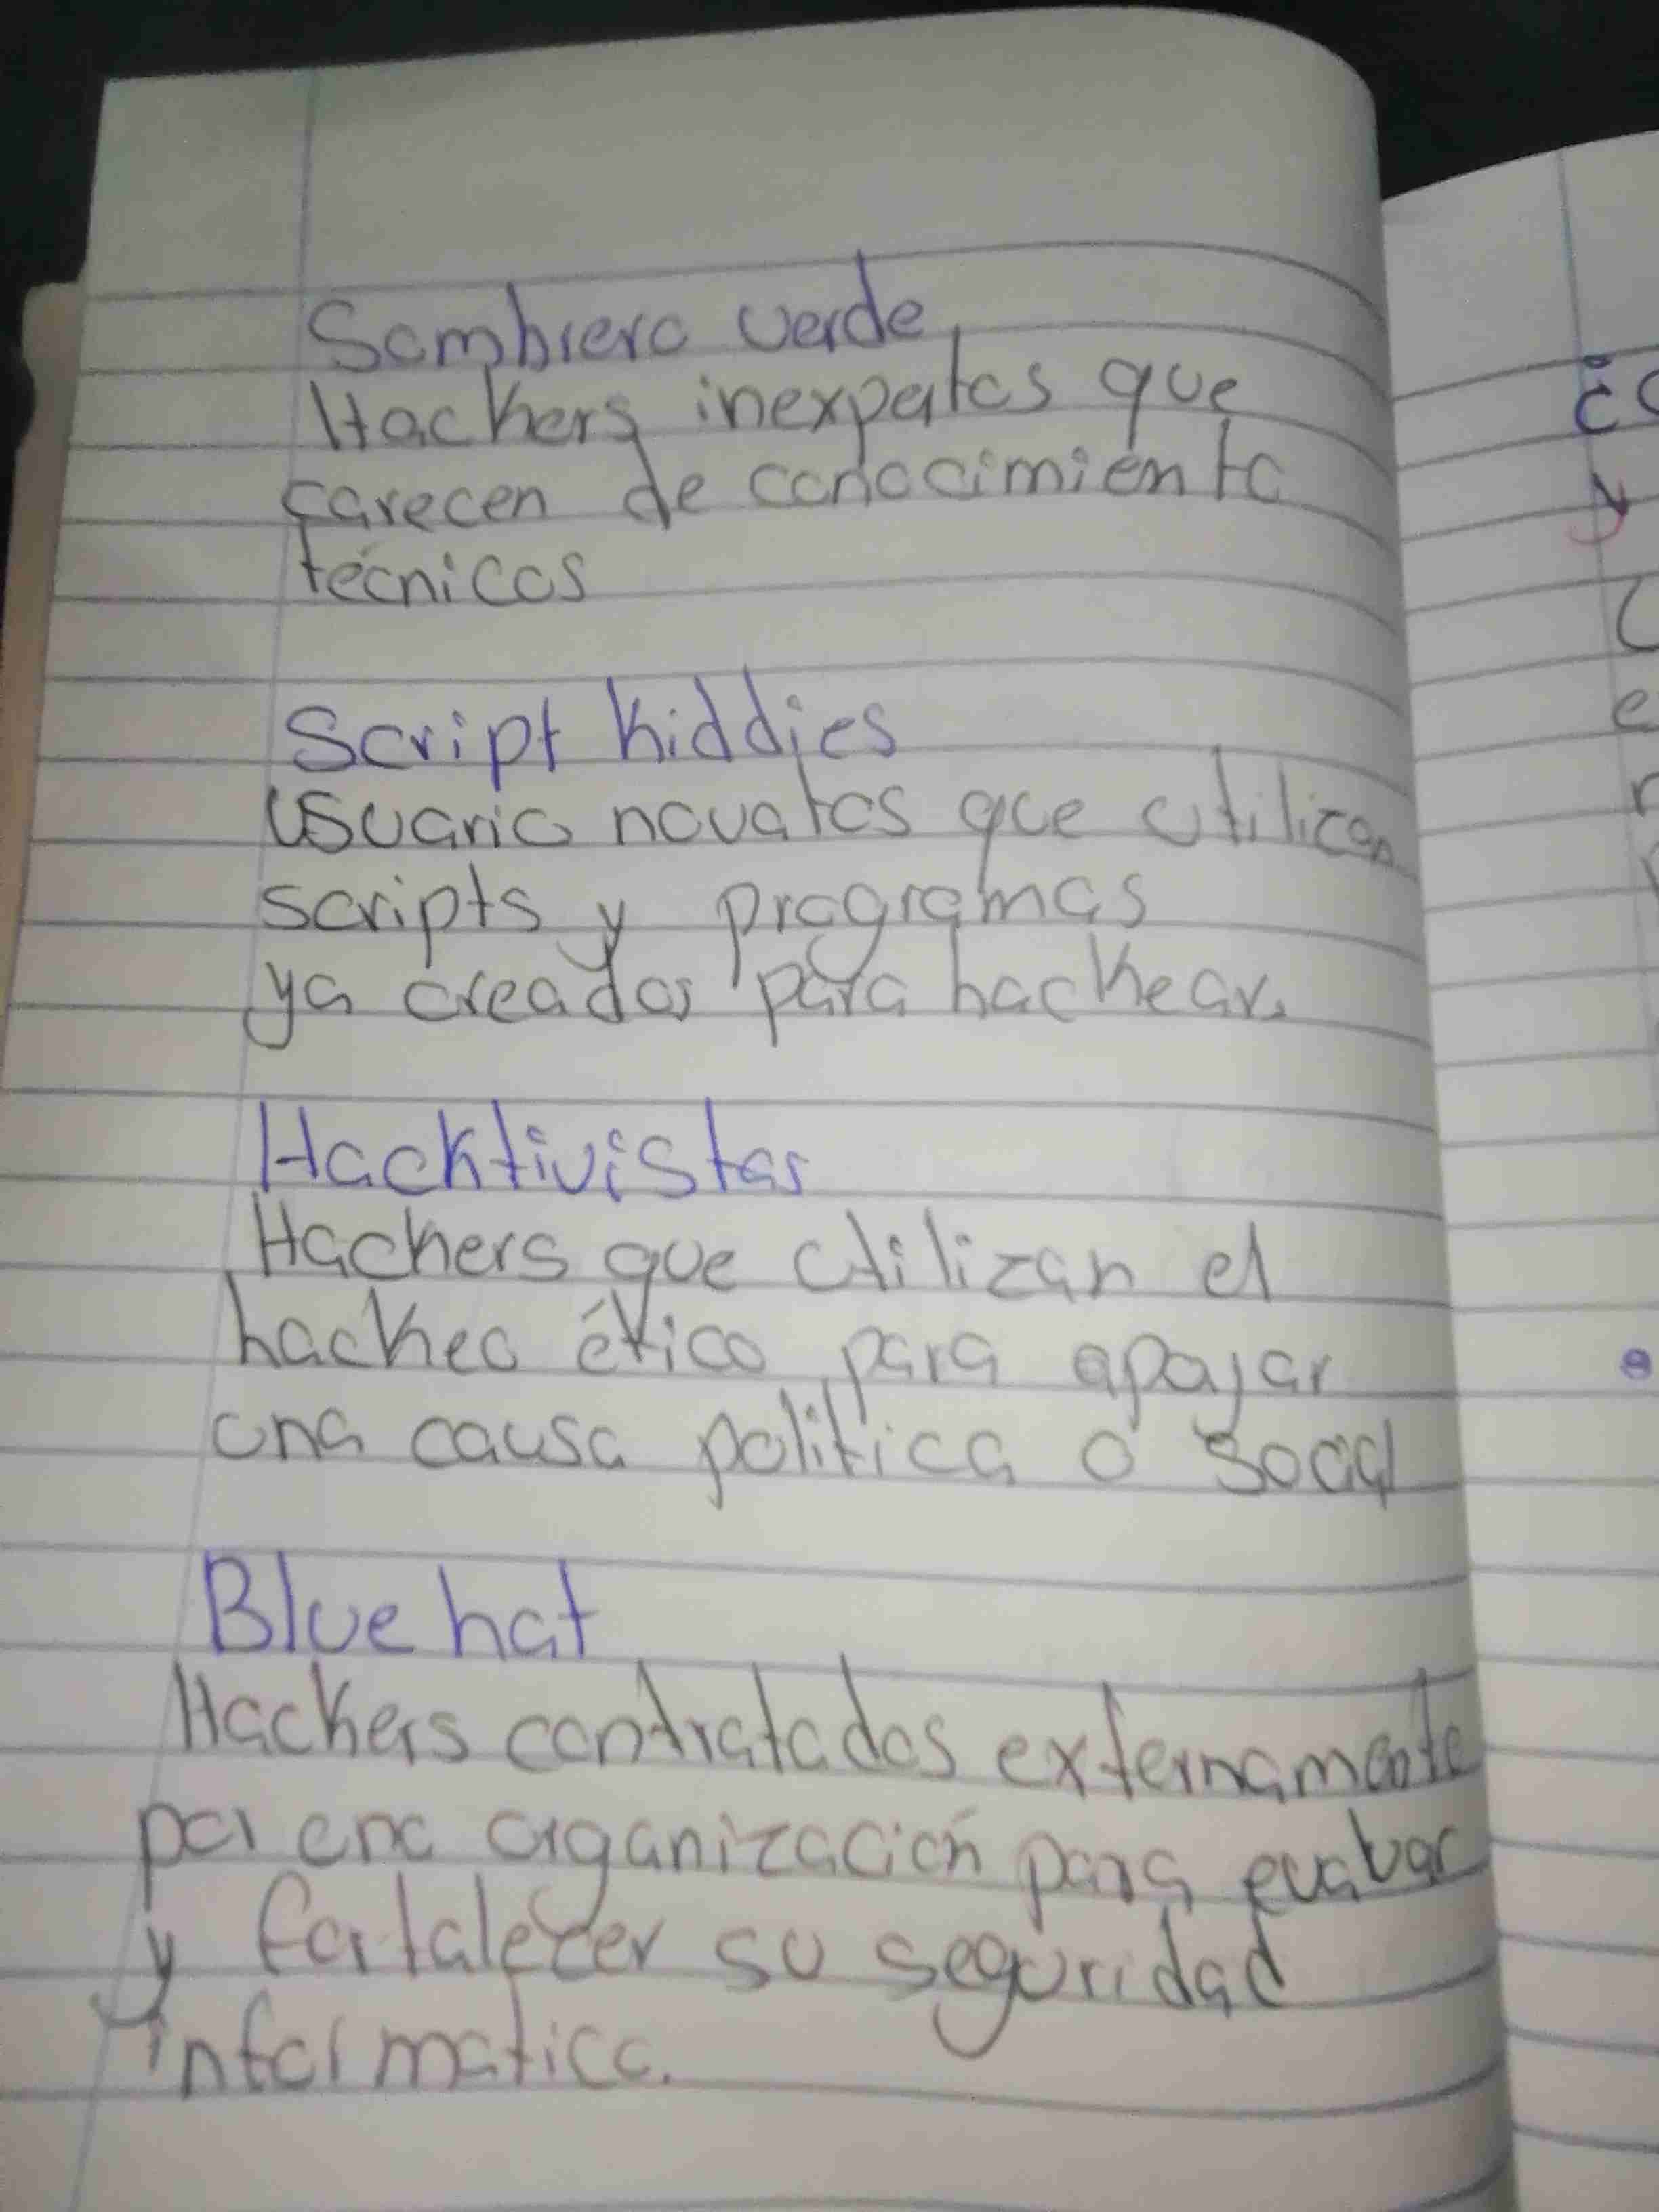 Sombrero verde
Hackers inexpertos que
carecen de conocimiento
técnicos
Script Kiddies
Usuario novatos que utilizan
scripts y programas
ya creados para hackear.
Hacktivistas
Hackers que utilizan el
hackeo ético para apoyar
una causa política o social
Blue hat
Hackers contratados externamente
por una organización para evaluar
y fortalecer su seguridad
informatica.